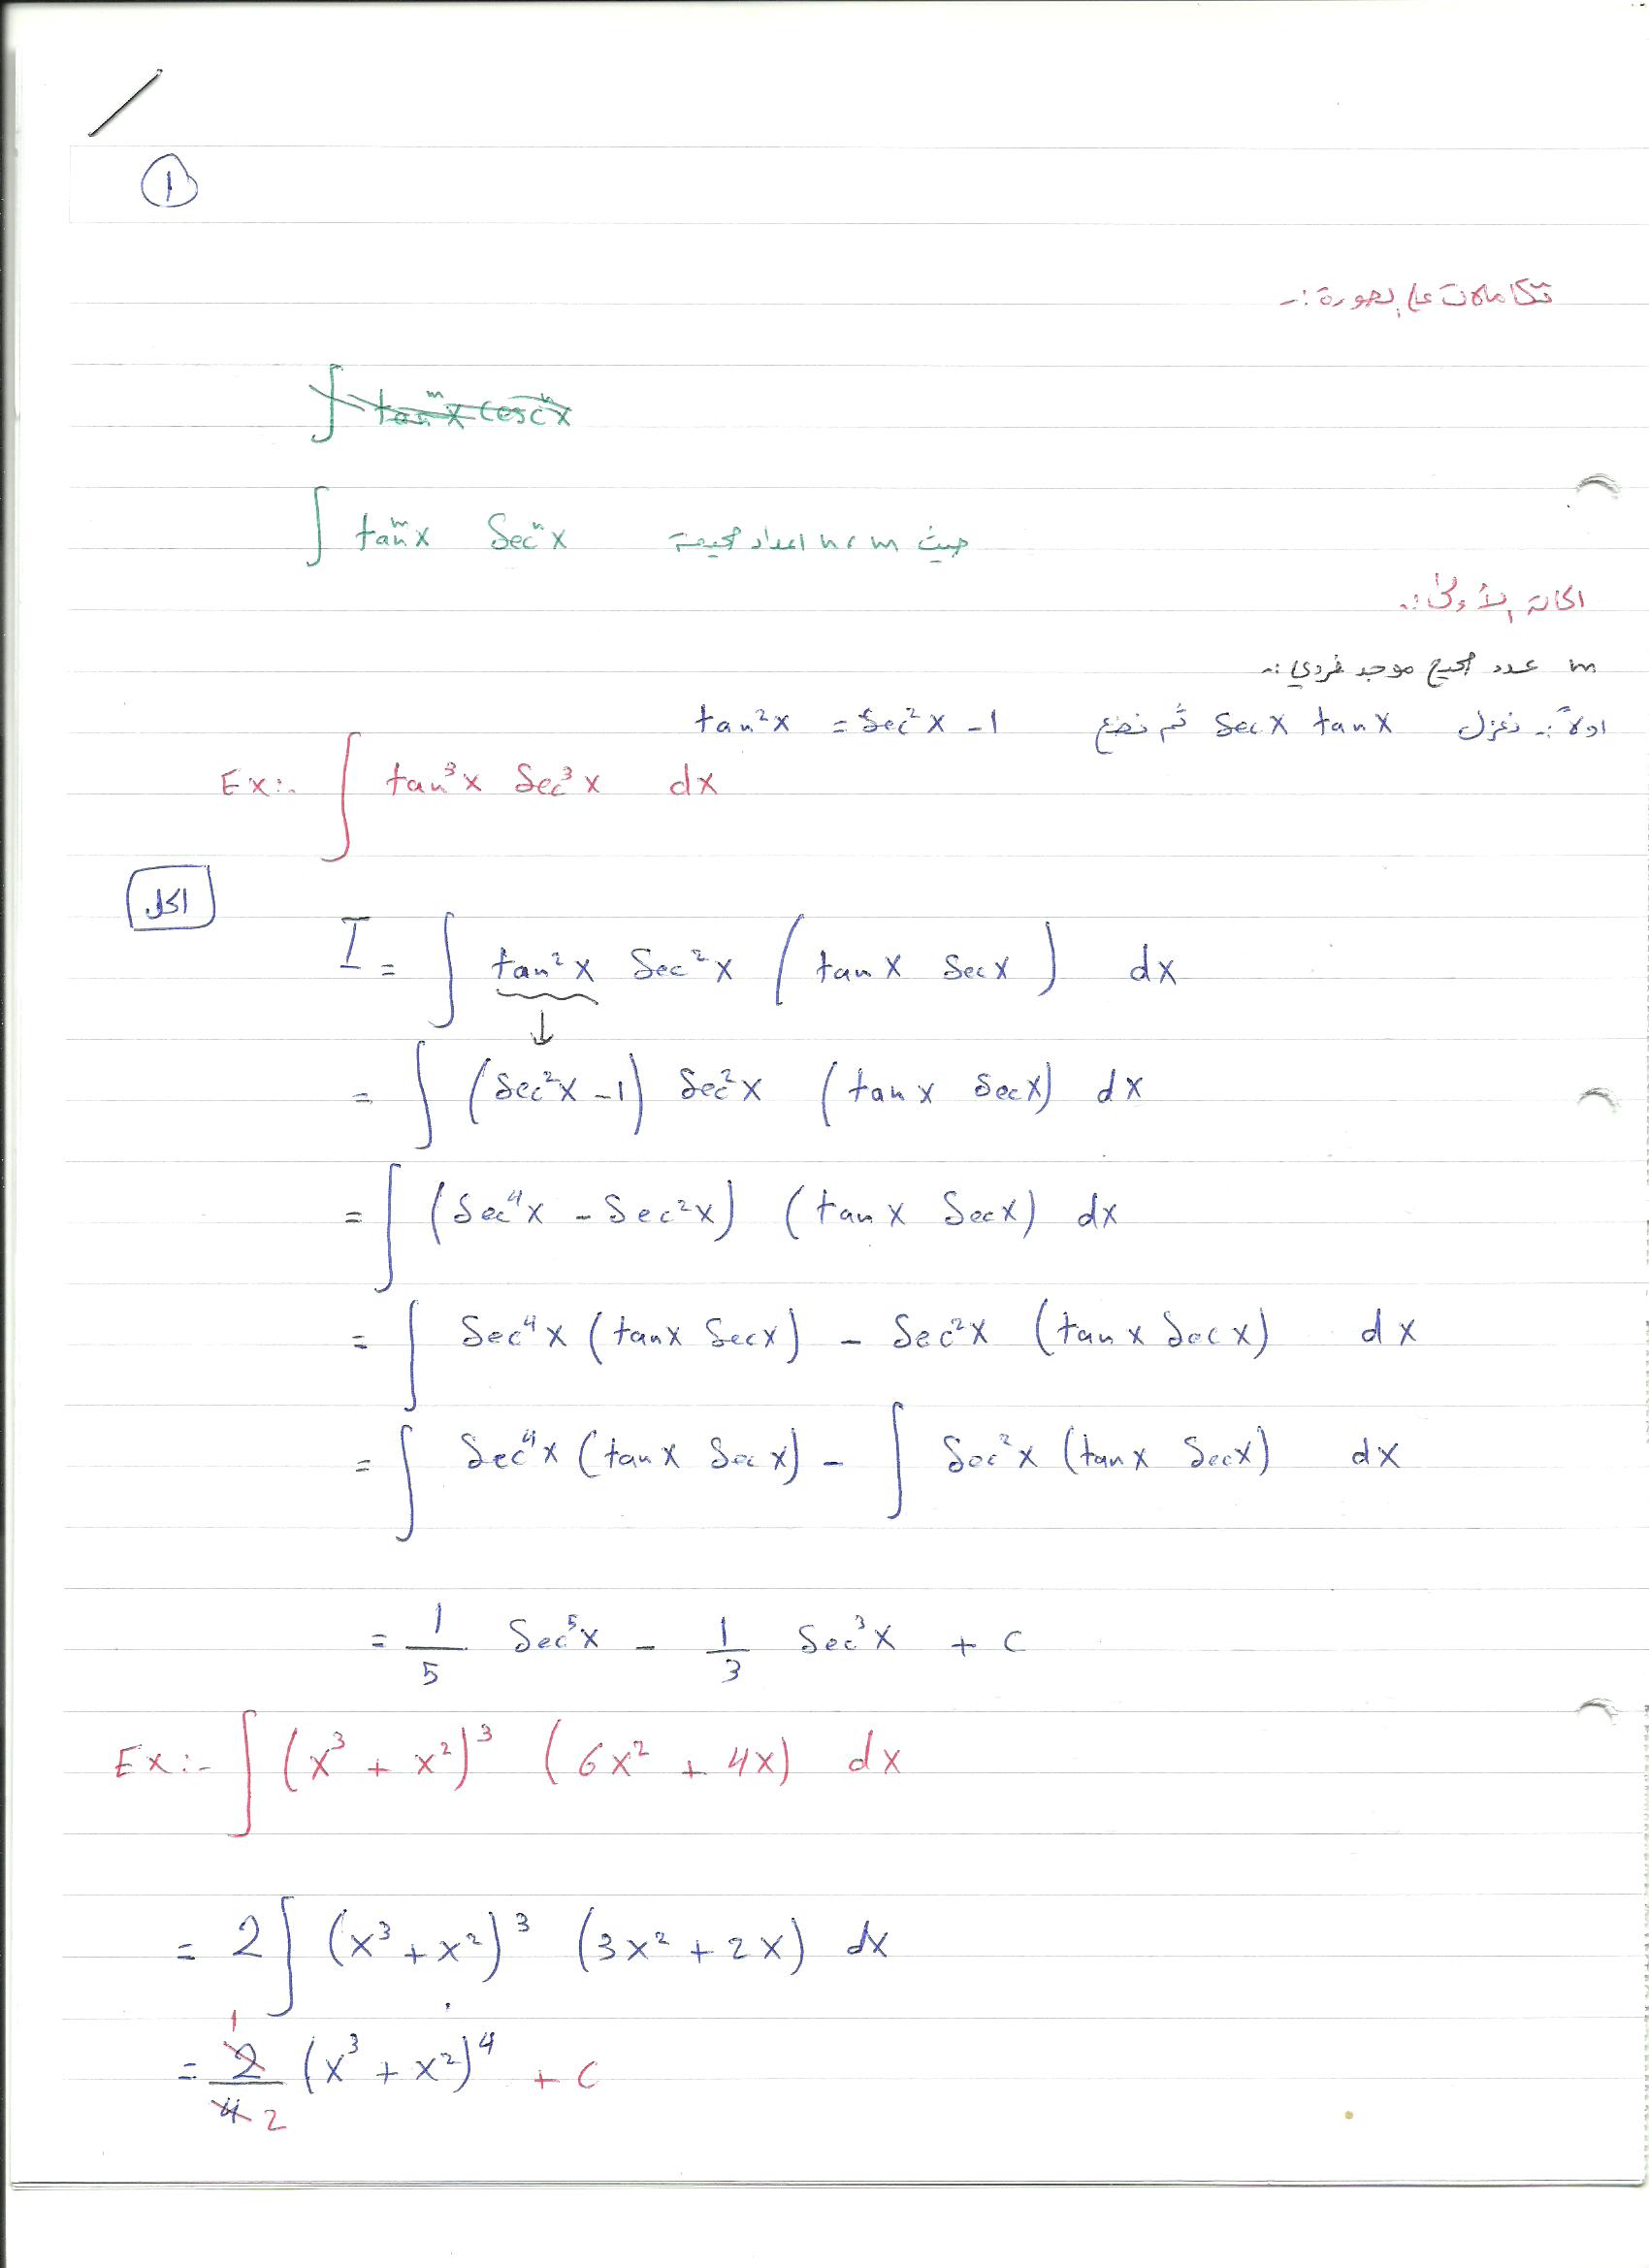 1
تكاملات على الصورة :-
∫ tanᵐx cscⁿx
∫ tanᵐx Secⁿx حيث m ، n اعداد صحيحة
الحالة الأولى :-
m عدد صحيح موجب فردي :-
اولاً :- نعزل sec x tan x ثم نضع tan²x = Sec²x - 1
Ex:- ∫ tan³x Sec³x dx
الحل
I = ∫ tan²x Sec²x (tan x Sec x) dx
↓
= ∫ (Sec²x - 1) Sec²x (tan x Sec x) dx
= ∫ (Sec⁴x - Sec²x) (tan x Sec x) dx
= ∫ Sec⁴x (tan x Sec x) - Sec²x (tan x Sec x) dx
= ∫ Sec⁴x (tan x Sec x) - ∫ Sec²x (tan x Sec x) dx
= 1/5 Sec⁵x - 1/3 Sec³x + c
Ex:- ∫ (x³ + x²)³ (6x² + 4x) dx
= 2 ∫ (x³ + x²)³ (3x² + 2x) dx
1
= 2/4 (x³ + x²)⁴ + c
2